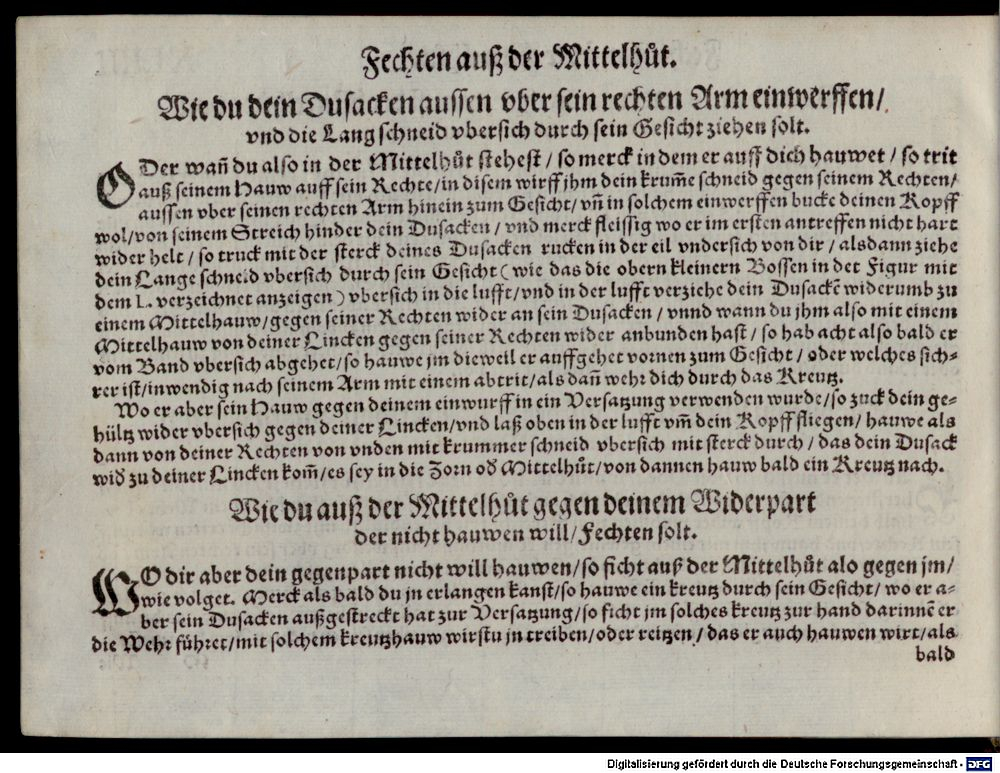 Fechten auß der Mittelhůt.
Wie du dein Dusacken aussen vber sein rechten Arm einwerffen/
vnd die Lang schneid vbersich durch sein Gesicht ziehen solt.
ODer wañ du also in der Mittelhůt stehest / so merck in dem er auff dich hauwet / so trit
auß seinem Hauw auff sein Rechte/in disem wirff jhm dein krum̃e schneid gegen seinem Rechten/
aussen vber seinen rechten Arm hinein zum Gesicht/ vñ in solchem einwerffen bucke deinen Kopff
wol/von seinem Streich hinder dein Dusacken / vnd merck fleissig wo er im ersten antreffen nicht hart
wider helt / so truck mit der sterck deines Dusacken rucken in der eil vndersich von dir / alsdann ziehe
dein Lange schneid vbersich durch sein Gesicht ( wie das die obern kleinern Bossen in det Figur mit
dem L. verzeichnet anzeigen ) vbersich in die lufft/vnd in der lufft verziehe dein Dusackẽ widerumb zu
einem Mittelhauw/gegen seiner Rechten wider an sein Dusacken / vnnd wann du jhm also mit einem
Mittelhauw von deiner Lincken gegen seiner Rechten wider anbunden hast / so hab acht also bald er
vom Band vbersich abgehet/so hauwe jm dieweil er auffgehet vornen zum Gesicht / oder welches sich-
rer ist/inwendig nach seinem Arm mit einem abtrit/als dañ wehr dich durch das Kreutz.
Wo er aber sein Hauw gegen deinem einwurff in ein Versatzung verwenden wurde/so zuck dein ge-
hültz wider vbersich gegen deiner Lincken/vnd laß oben in der lufft vm̃ dein Kopff fliegen/ hauwe als
dann von deiner Rechten von vnden mit krummer schneid vbersich mit sterck durch / das dein Dusack
wid zu deiner Lincken kom̃/es sey in die Zorn od Mittelhůt/von dannen hauw bald ein Kreutz nach.
Wie du auß der Mittelhůt gegen deinem Widerpart
der nicht hauwen will/Fechten solt.
WO dir aber dein gegenpart nicht will hauwen/so ficht auß der Mittelhůt alo gegen jm/
wie volget. Merck als bald du jn erlangen kanst/so hauwe ein kreutz durch sein Gesicht/ wo er a-
ber sein Dusacken außgestreckt hat zur Versatzung/so ficht jm solches kreutz zur hand darinnẽ er
die Wehr führet/mit solchem kreutzhauw wirstu jn treiben/oder reitzen / das er auch hauwen wirt/als
bald
Digitalisierung gefördert durch die Deutsche Forschungsgemeinschaft - DFG